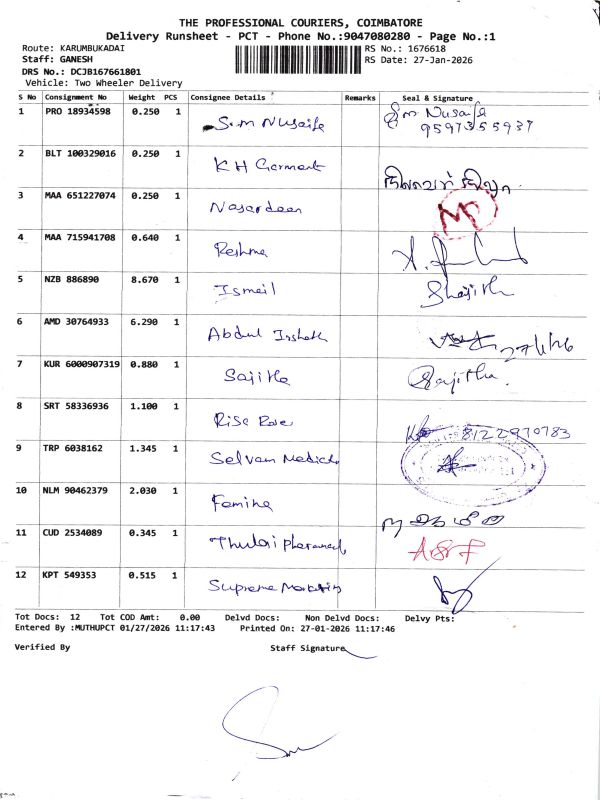 THE PROFESSIONAL COURIERS, COIMBATORE
Delivery Runsheet - PCT - Phone No.:9047080280 - Page No.:1
Route: KARUMBUKADAI RS No.: 1676618
Staff: GANESH RS Date: 27-Jan-2026
DRS No.: DCJB167661801
Vehicle: Two Wheeler Delivery
S No Consignment No Weight PCS Consignee Details Remarks Seal & Signature
1 PRO 18934598 0.250 1 S.M Nusaifa S.M Nusaifa
9597355937
2 BLT 100329016 0.250 1 K H Garment
3 MAA 651227074 0.250 1 Nasardeen
4 MAA 715941708 0.640 1 Reshma
5 NZB 886890 8.670 1 Ismail Shajitha
6 AMD 30764933 6.290 1 Abdul Irshath 27/1/26
7 KUR 6000907319 0.880 1 Sajitha Sajitha.
8 SRT 58336936 1.100 1 Rise Rose 8122970783
9 TRP 6038162 1.345 1 Selvan Medicals
10 NLM 90462379 2.030 1 Femina
11 CUD 2534089 0.345 1 Thulasi Pharamacy
12 KPT 549353 0.515 1 Supreme Marketing
Tot Docs: 12 Tot COD Amt: 0.00 Delvd Docs: Non Delvd Docs: Delvy Pts:
Entered By :MUTHUPCT 01/27/2026 11:17:43 Printed On: 27-01-2026 11:17:46
Verified By Staff Signature